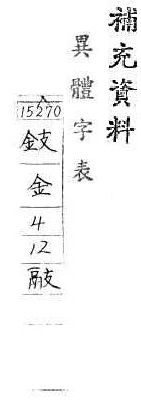 補充資料
異體字表
15270
鈘
金
4
12
䰙